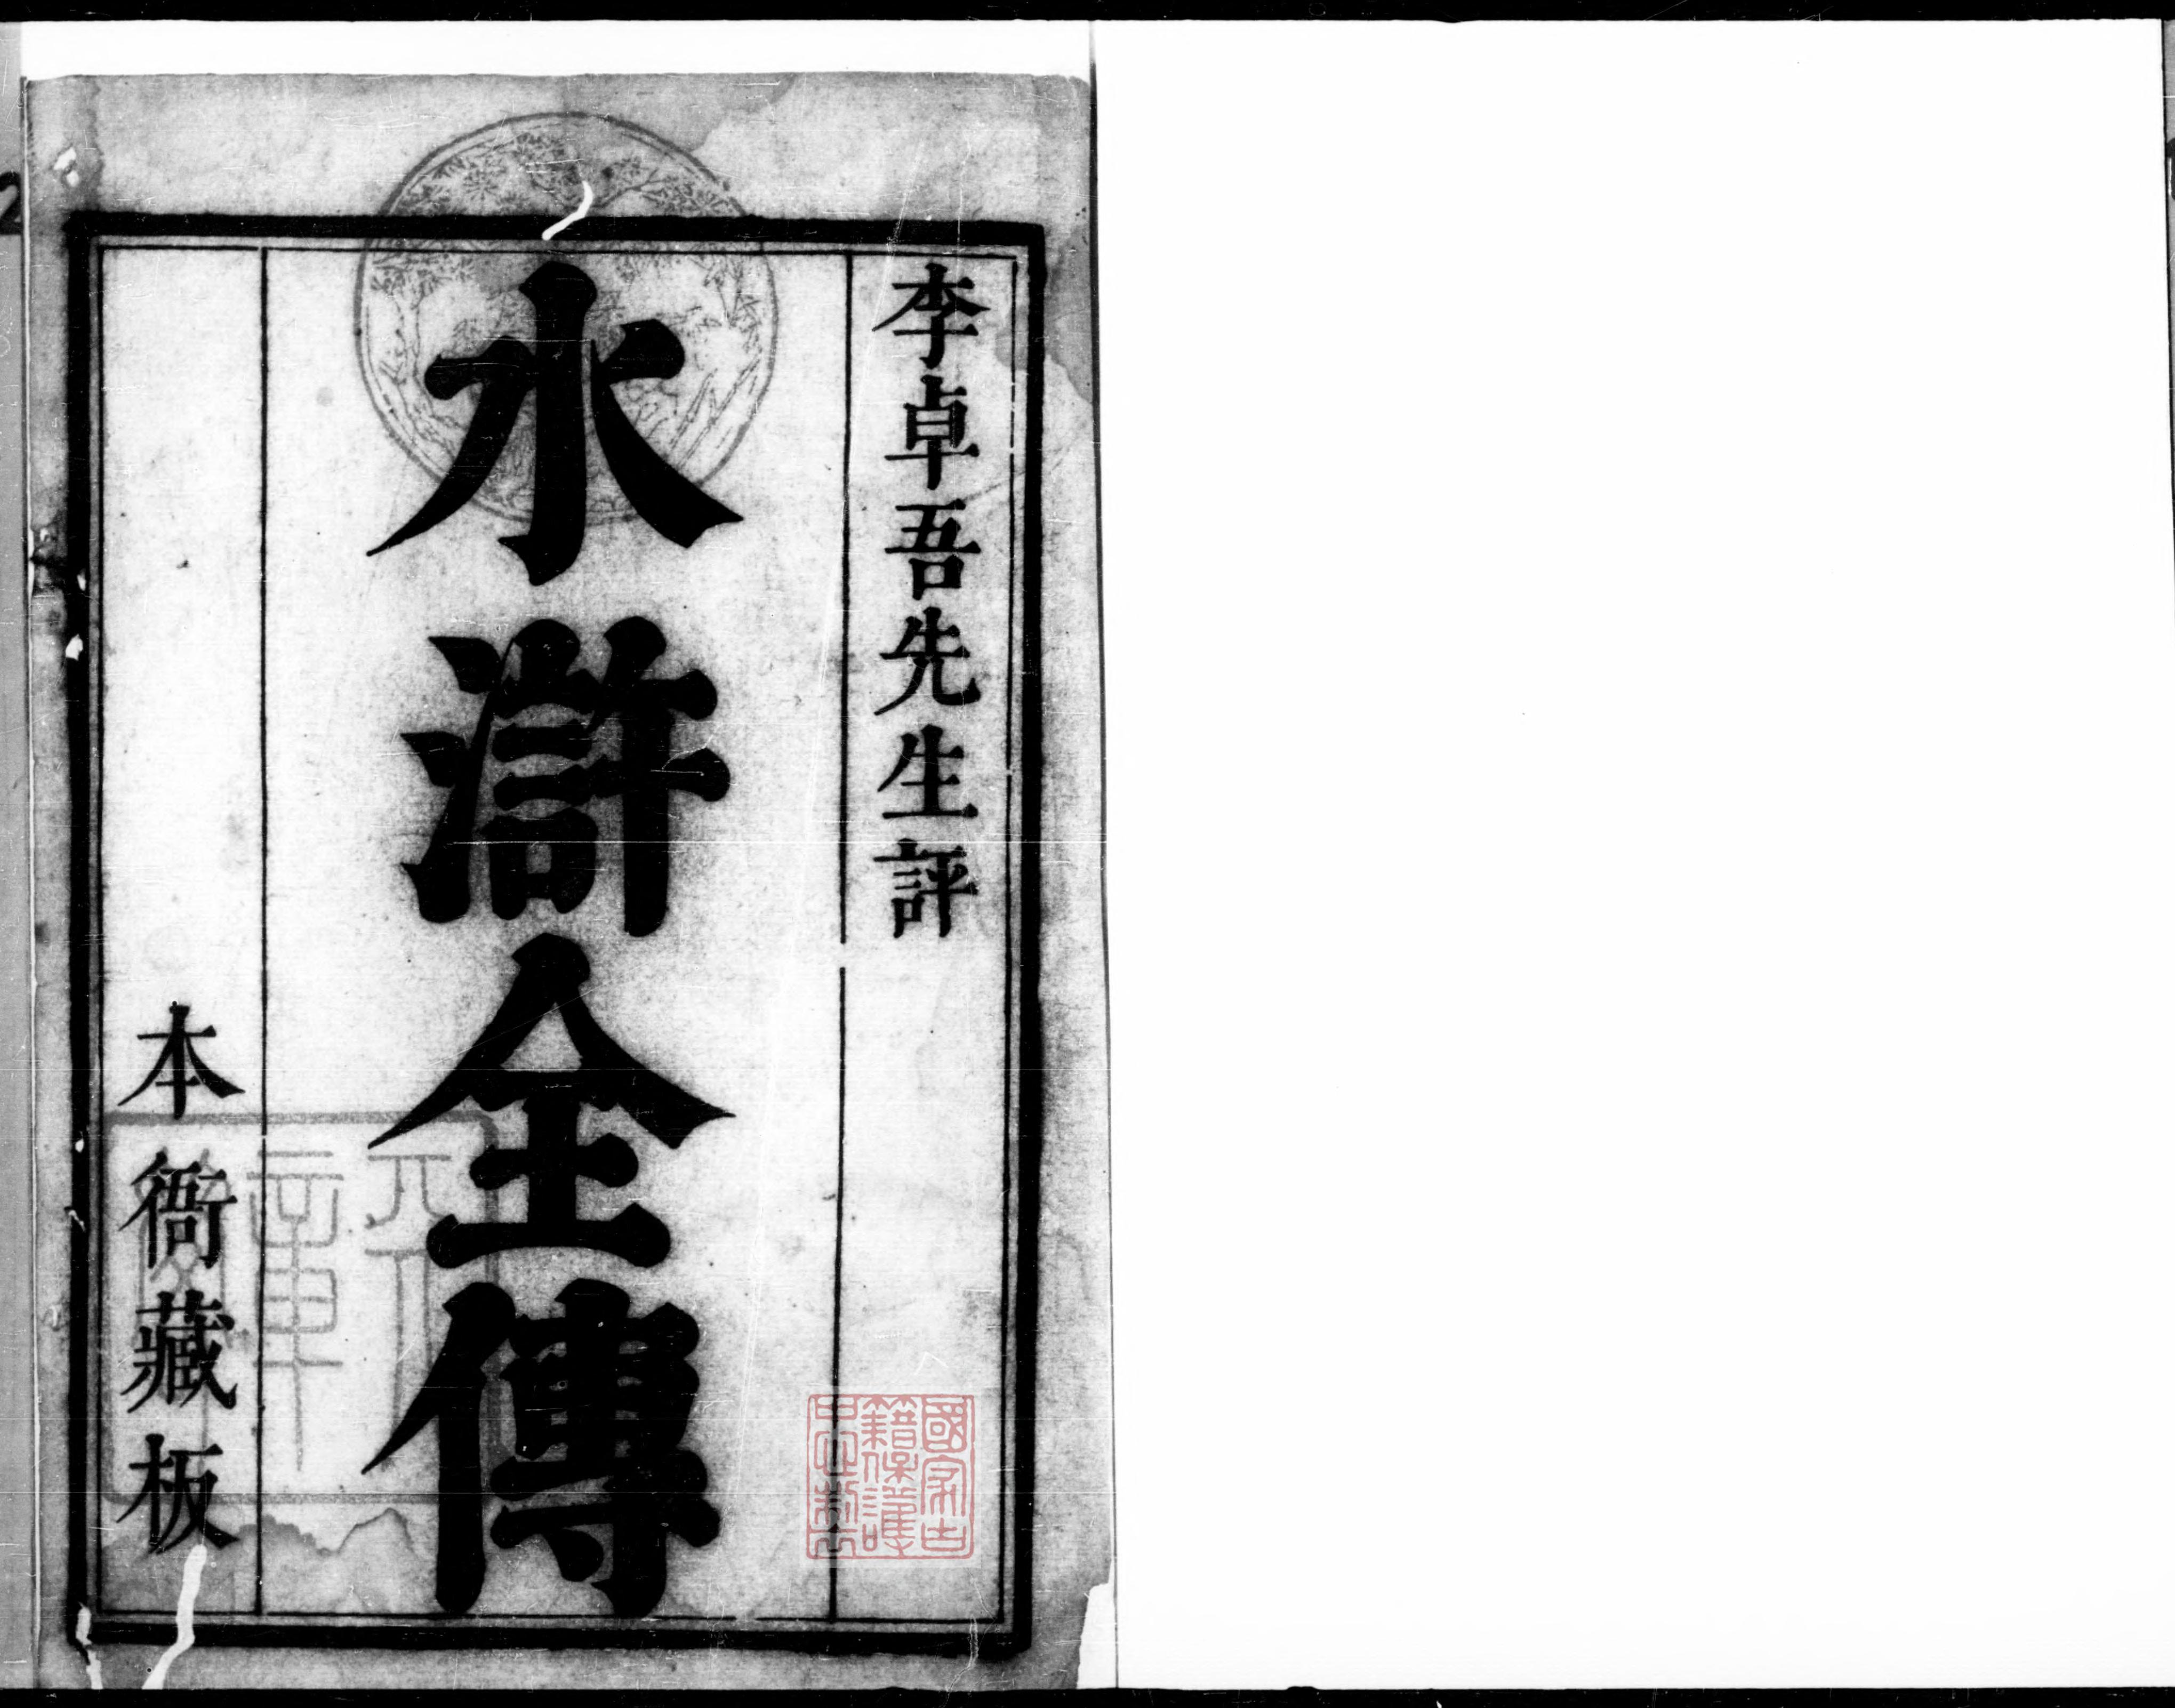 李卓吾先生評
水滸全傳
本衙藏板
國家古
籍保護
中心制六